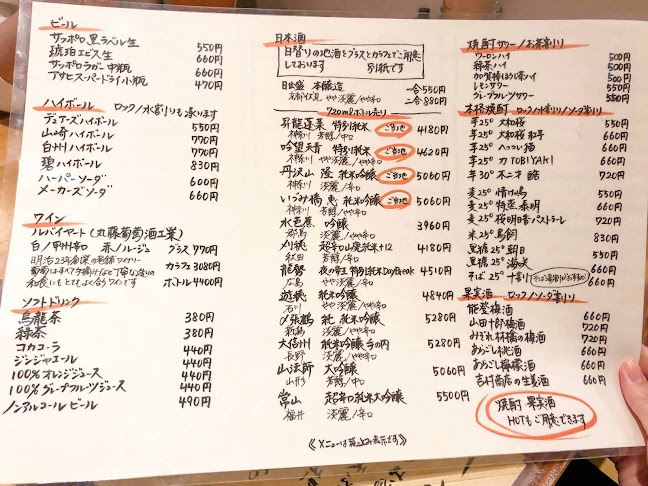 ビール
サッポロ黒ラベル生 550円
琥珀ヱビス生 660円
サッポロラガー中瓶 660円
アサヒスーパードライ小瓶 470円
ハイボール ロック/水割りも承ります
デュワーズハイボール 550円
山崎ハイボール 770円
白州ハイボール 770円
碧ハイボール 830円
ハーパーソーダ 600円
メーカーズソーダ 660円
ワイン
ルバイヤート(丸藤葡萄酒工業)
白/甲州辛口 赤/ルージュ グラス 770円
明治23年創業の老舗ワイナリー カラフェ 3080円
和食にもとてもよく合うワインです ボトル 4400円
ソフトドリンク
烏龍茶 380円
緑茶 380円
コカコーラ 440円
ジンジャエール 440円
100%オレンジジュース 440円
100%グレープフルーツジュース 440円
ノンアルコールビール 490円
日本酒
日替りの地酒をグラスとカラフェでご用意
しております 別紙です
日出盛 本醸造 一合 550円
京都伏見 やや淡麗/やや辛口 二合 880円
720mlボトル売り
昇龍蓬莱 特別純米 ご当地 4180円
神奈川 芳醇/中口
吟望天青 特別純米 ご当地 4620円
神奈川 やや淡麗/やや辛口
丹沢山 隆 純米吟醸 ご当地 5060円
神奈川 淡麗/辛口
いづみ橋 恵 純米吟醸 ご当地 5060円
神奈川 芳醇/辛口
水芭蕉 吟醸 3960円
群馬 淡麗/やや辛口
刈穂 超辛口山廃純米+12 4180円
秋田 芳醇/辛口
龍勢 夜の帝王 特別純米 4510円
広島 やや淡麗/やや辛口
遊穂 純米吟醸 4840円
石川 やや淡麗/やや辛口
〆張鶴 純 純米吟醸 5280円
新潟 淡麗/やや辛口
大信州 純米吟醸 手の内 5280円
長野 淡麗/やや辛口
山法師 大吟醸 5060円
山形 芳醇/中口
常山 超辛口純米大吟醸 5500円
福井 淡麗/辛口
《メニューは税込み表示です》
焼酎サワー/お茶割り
ウーロンハイ 500円
緑茶ハイ 500円
加賀棒ほうじ茶ハイ 500円
レモンサワー 550円
グレープフルーツサワー 550円
本格焼酎 ロック/水割り/ソーダ割り
芋25° 大和桜 550円
芋25° 大和桜 紅芋 660円
芋25° へっつい猫 660円
芋25° 力 TOBIYAKI 660円
芋30° 不二才 醅 720円
麦25° 情け嶋 550円
麦25° 特蒸泰明 660円
麦25° 桜明日香パストラーレ 720円
米25° 鳥飼 830円
黒糖25° 朝日 550円
黒糖25° 海火 660円
そば25° 十割 660円
果実酒 ロック/ソーダ割り
能登梅酒 660円
山田十郎梅酒 720円
みぞれ林檎の梅酒 720円
あらごし桃酒 660円
あらごし檸檬酒 660円
吉村商店の生姜酒 660円
焼酎 果実酒
HOTもご用意できます